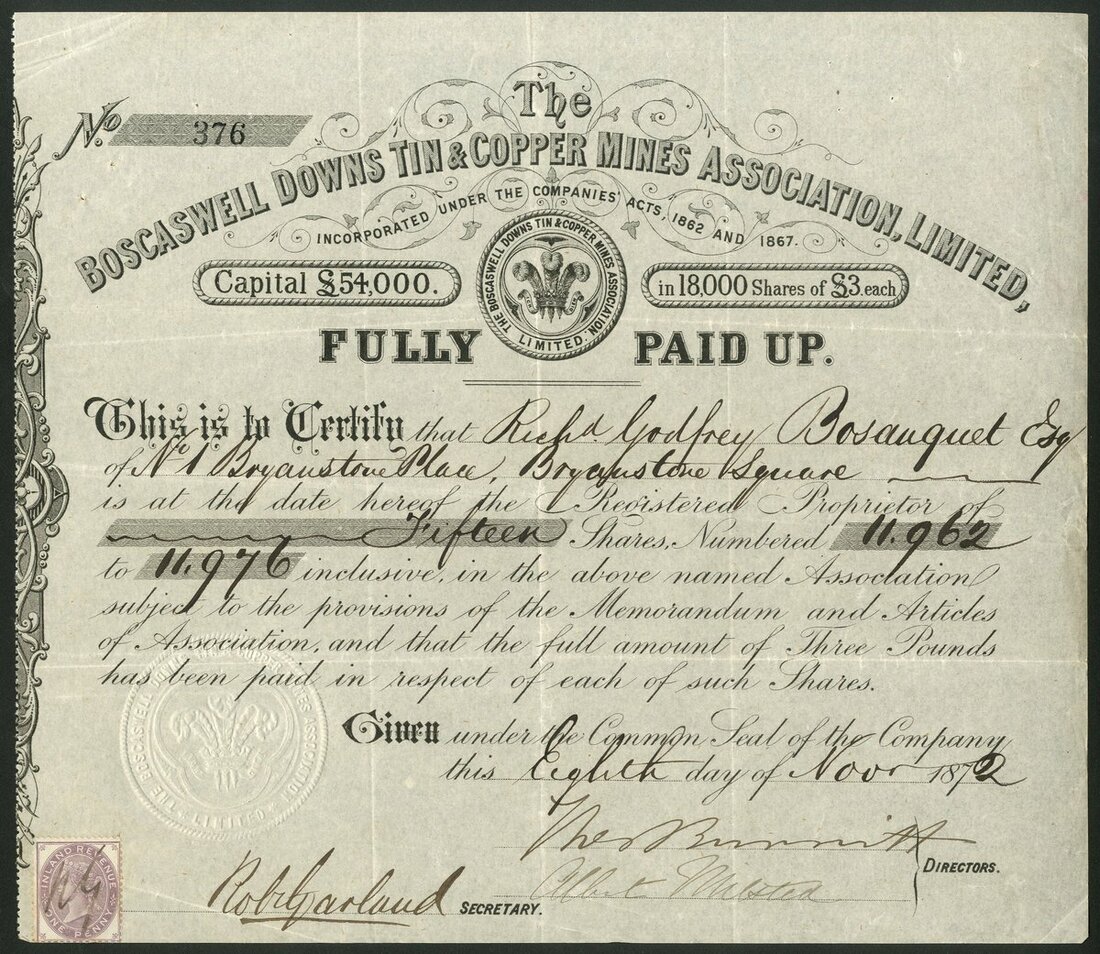 No. 376
The
BOSCASWELL DOWNS TIN & COPPER MINES ASSOCIATION, LIMITED,
INCORPORATED UNDER THE COMPANIES' ACTS, 1862 AND 1867.
Capital £54,000.
in 18,000 Shares of £3. each
THE BOSCASWELL DOWNS TIN & COPPER MINES ASSOCIATION LIMITED.
FULLY PAID UP.
This is to Certify that Richd Godfrey Bosanquet Esq
of No 1 Bryanstone Place, Bryanstone Square
is at the date hereof the Registered Proprietor of
Fifteen Shares, Numbered 11.962
to 11.976 inclusive, in the above named Association
subject to the provisions of the Memorandum and Articles
of Association, and that the full amount of Three Pounds
has been paid in respect of each of such Shares.
Given under the Common Seal of the Company
this Eighth day of Novr 1872
THE BOSCASWELL DOWNS TIN & COPPER MINES ASSOCIATION LIMITED
DIRECTORS.
Robt Garland SECRETARY.
INLAND REVENUE
ONE PENNY